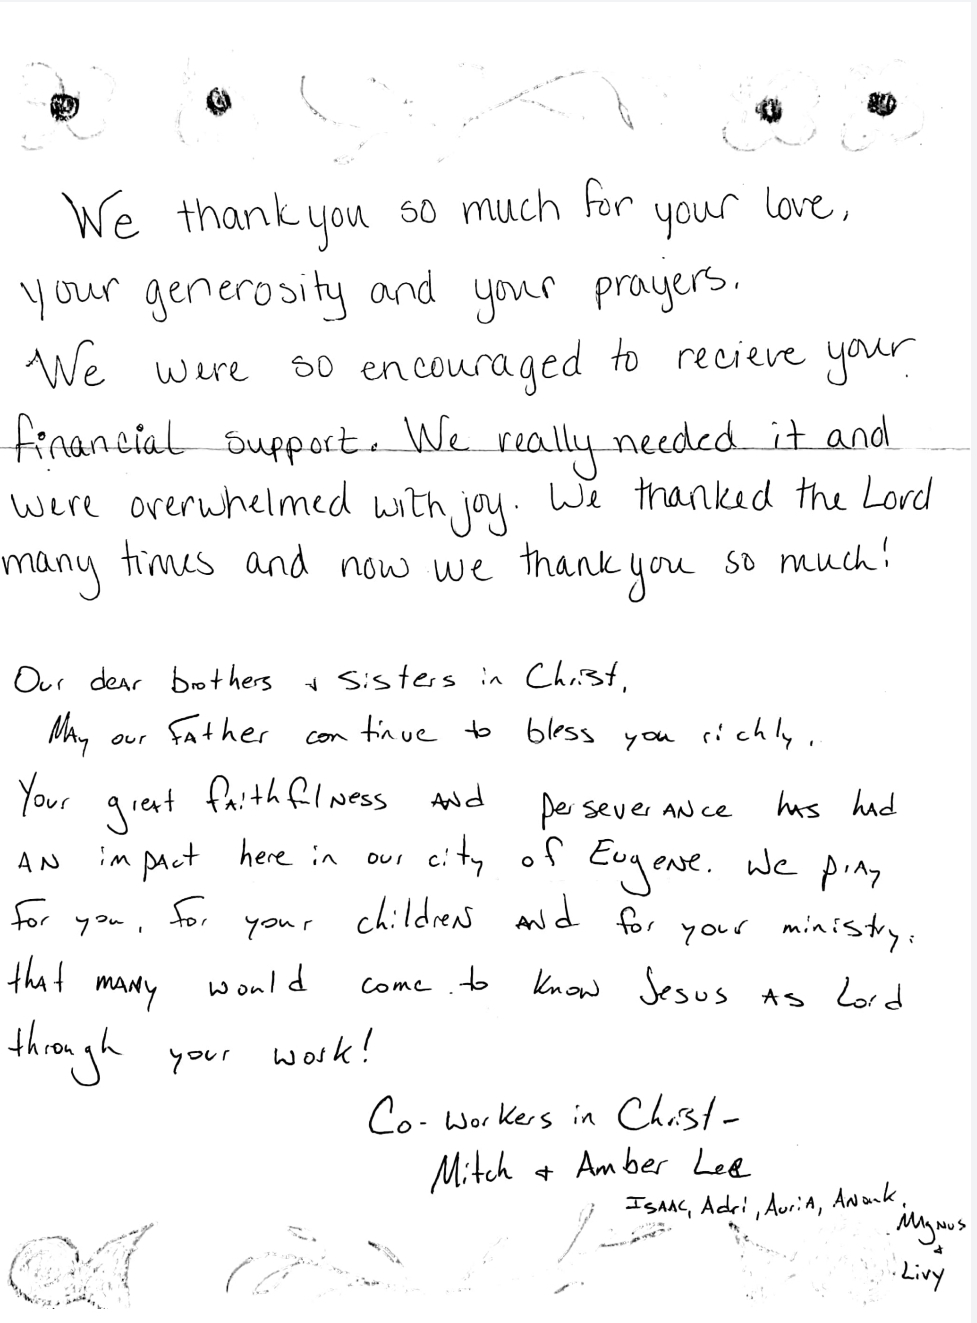 We thank you so much for your love,
your generosity and your prayers.
We were so encouraged to recieve your
financial support. We really needed it and
were overwhelmed with joy. We thanked the Lord
many times and now we thank you so much!
Our dear brothers & sisters in Christ,
May our Father continue to bless you richly.
Your great faithfulness and perseverance has had
an impact here in our city of Eugene. We pray
for you, for your children and for your ministry.
that many would come to know Jesus as Lord
through your work!
Co-workers in Christ-
Mitch & Amber Lee
Isaac, Adri, Auria, Anouk,
Magnus
&
Livy